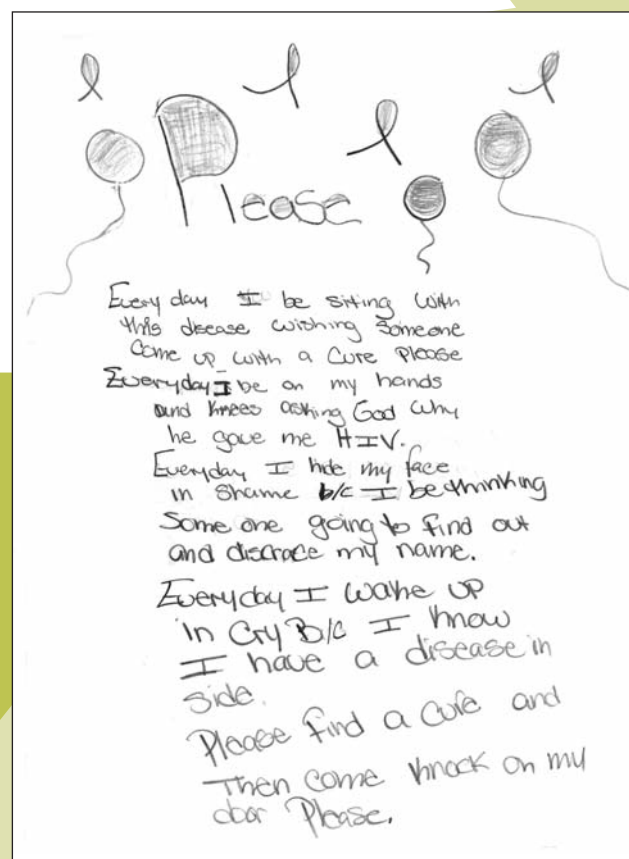 Please
Every day I be sitting with
this disease wishing someone
come up with a cure Please
Everyday I be on my hands
and knees asking God why
he gave me HIV.
Everyday I hide my face
in shame b/c I be thinking
Some one going to find out
and discrace my name.
Everyday I wake up
in Cry B/c I know
I have a disease in
side.
Please find a cure and
Then come knock on my
door Please.